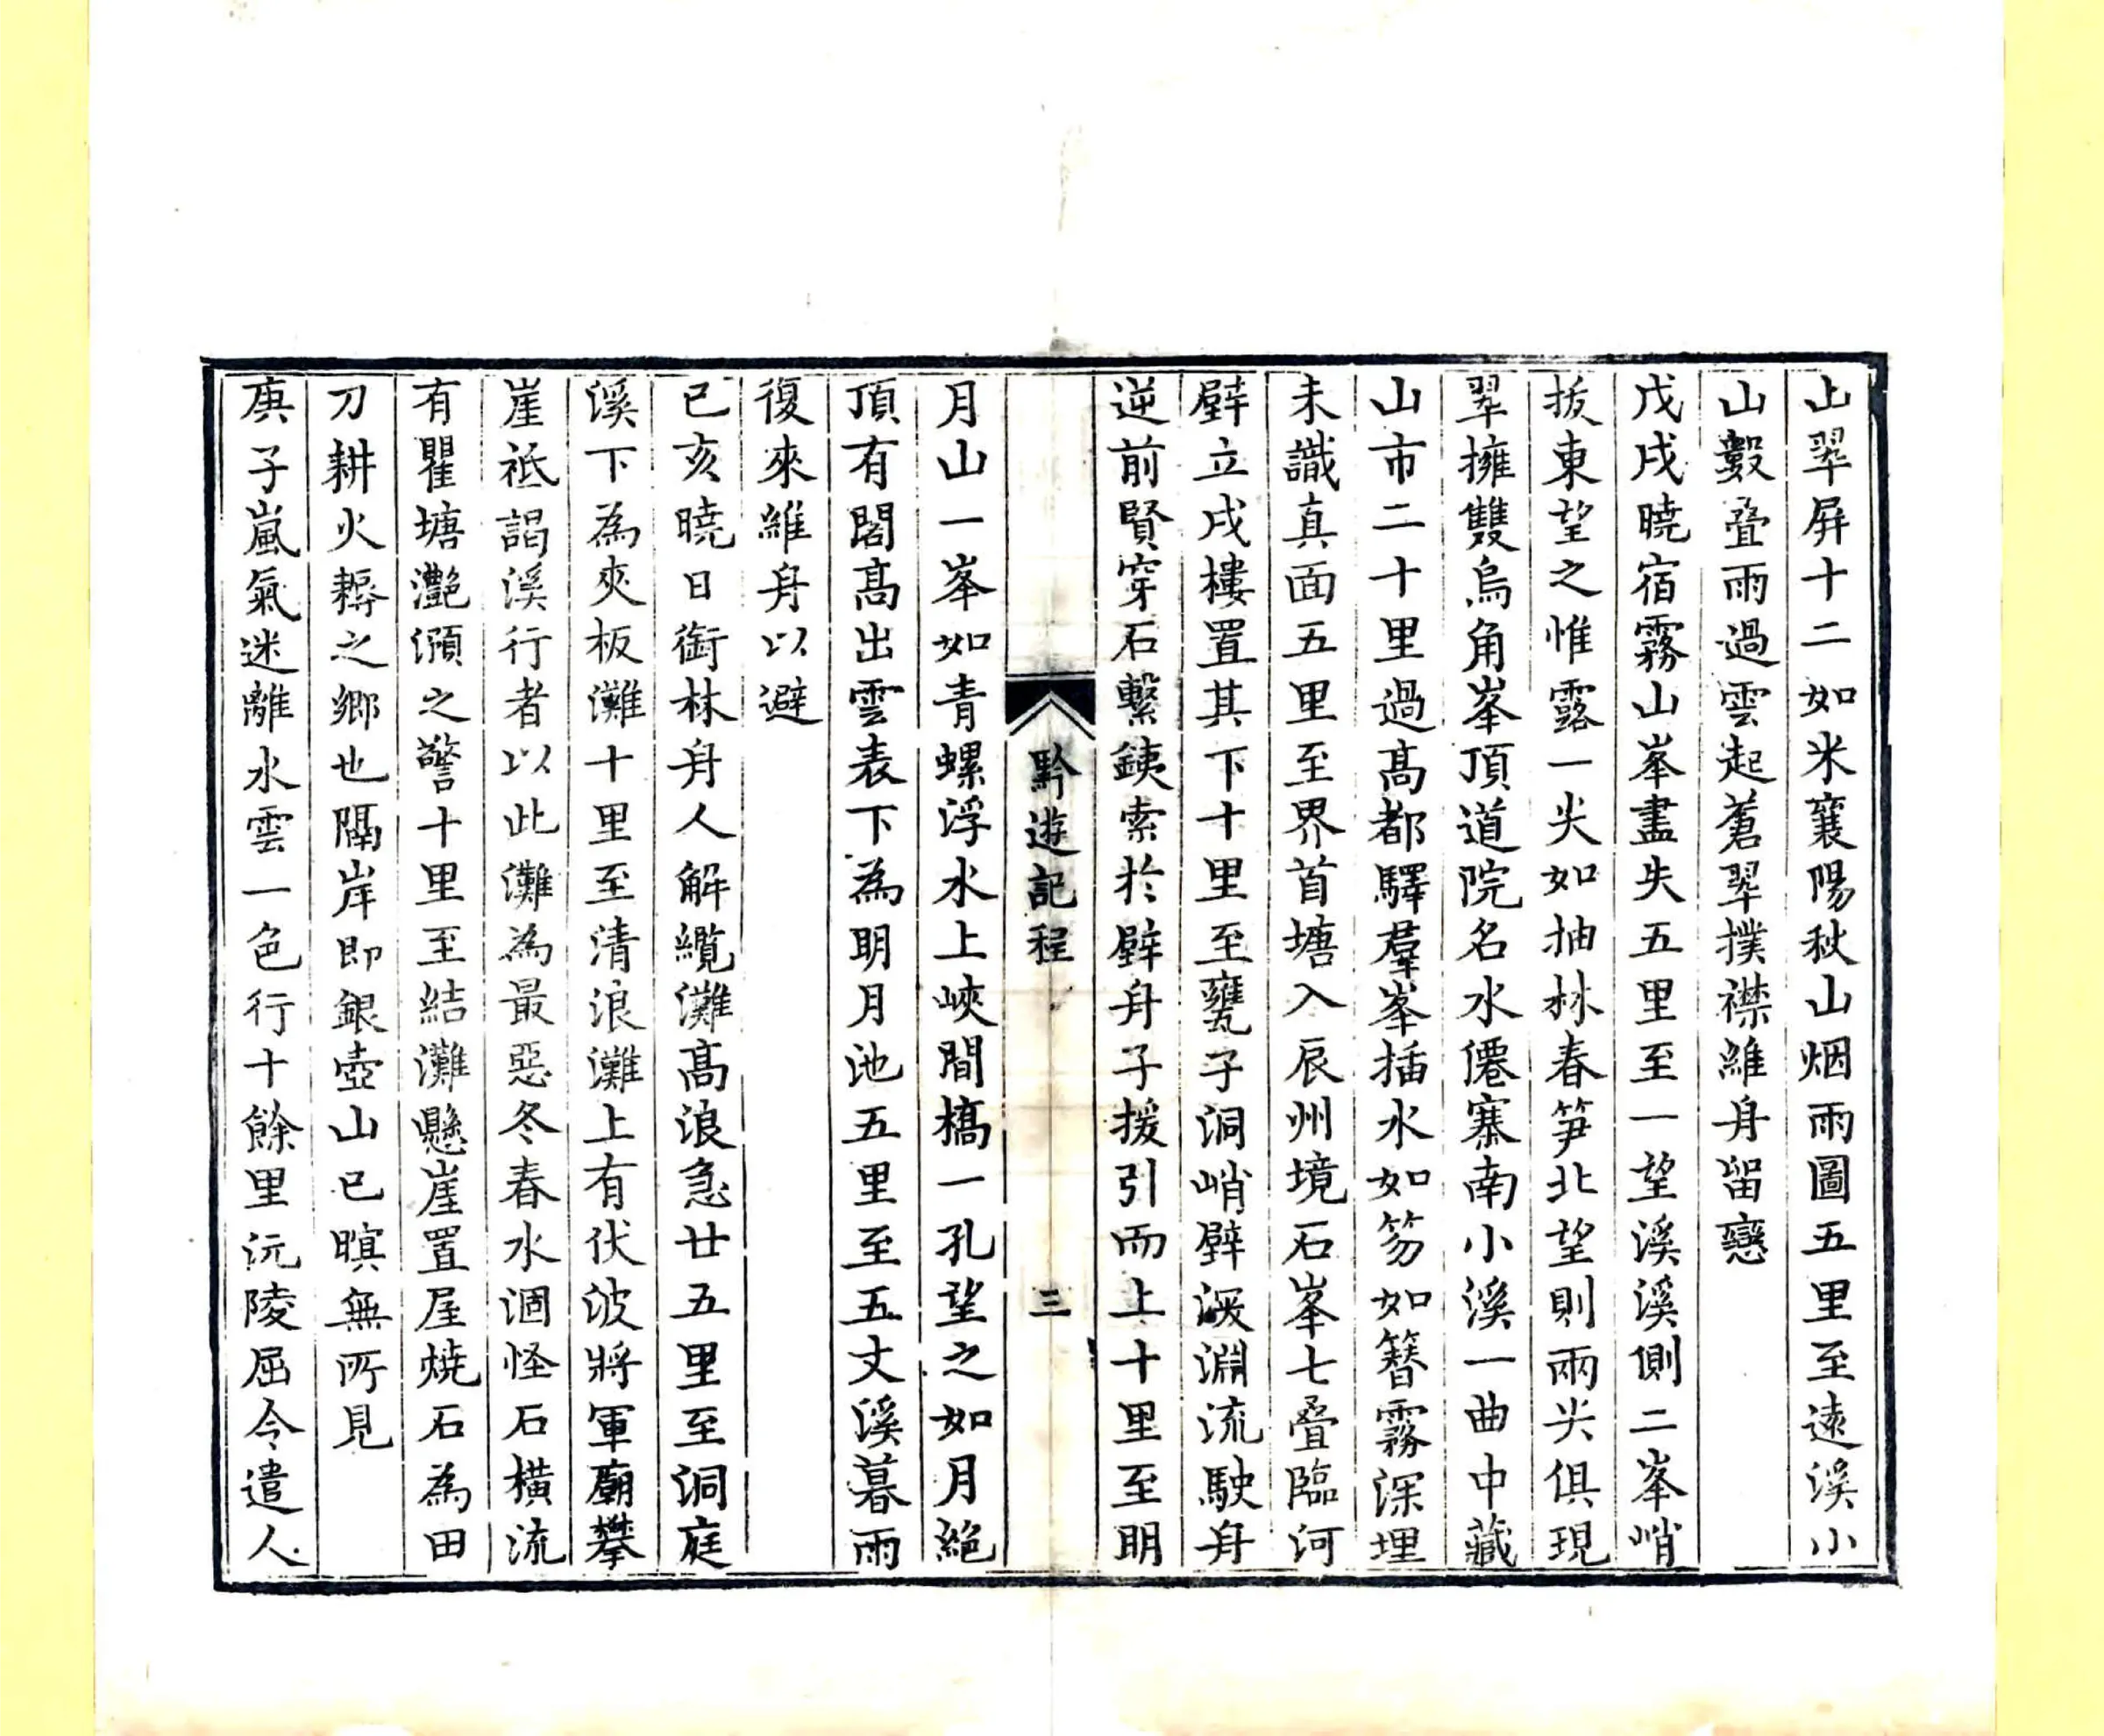 上翠屏十二如米襄陽秋山烟雨圖五里至遠溪小
山數叠雨過雲起蒼翠撲襟維舟留戀
戊戌曉宿霧山峯盡失五里至一望溪溪側二峯峭
拔東望之惟露一尖如抽林春笋北望則兩尖俱現
翠擁雙烏角峯頂道院名水僊寨南小溪一曲中藏
山市二十里過髙都驛羣峯插水如笏如簪霧深埋
未識真面五里至界首塘入辰州境石峯七叠臨河
壁立戍樓置其下十里至甕子洞峭壁澱淵流駛舟
逆前賢穿石繫銕索於壁舟子援引而上十里至明
黔遊記程
三
月山一峯如青螺浮水上峽間橋一孔望之如月絕
頂有閣髙出雲表下為明月池五里至五丈溪暮雨
復來維舟以避
已亥曉日銜林舟人解纜灘髙浪急廿五里至洞庭
溪下為夾板灘十里至清浪灘上有伏波將軍廟攀
崖祗謁溪行者以此灘為最惡冬春水涸怪石橫流
有瞿塘灧澦之警十里至結灘懸崖置屋燒石為田
刀耕火耨之鄉也隔岸即銀壺山已暝無所見
庚子嵐氣迷離水雲一色行十餘里沅陵屈令遣人